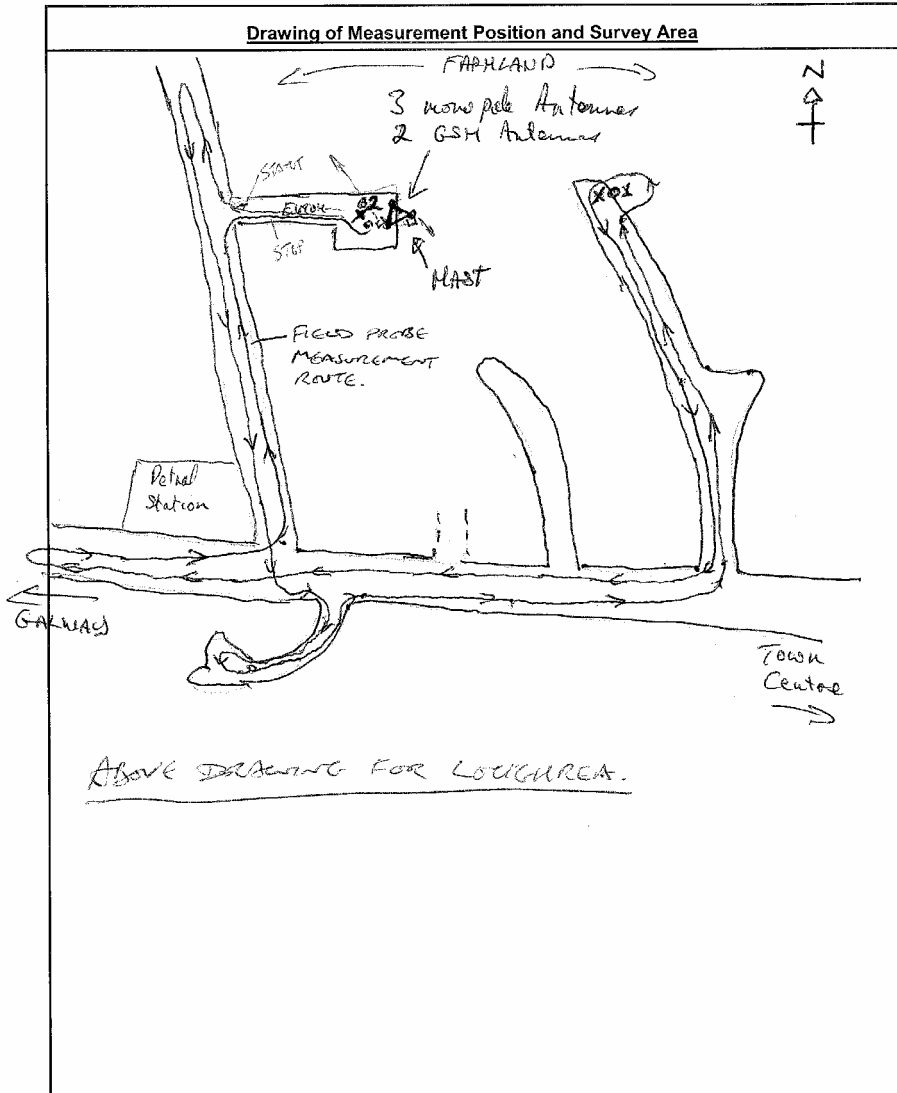 Drawing of Measurement Position and Survey Area
FARMLAND
N
3 monopole Antennas
2 GSM Antennas
START
02
X01
STOP
MAST
FIELD PROBE
MEASUREMENT
ROUTE.
Petrol
Station
GALWAY
Town
Centre
ABOVE DRAWING FOR LOUGHREA.